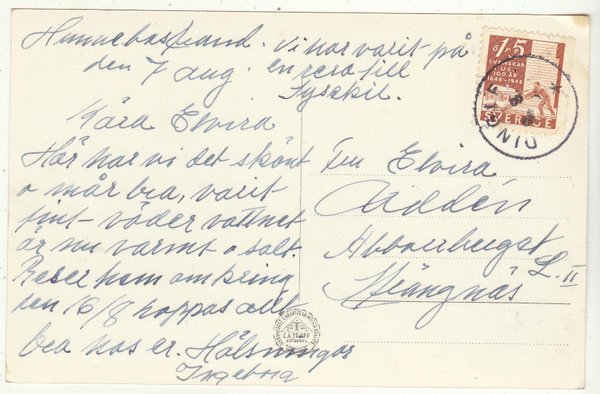 Hunnebostrand. Vi har varit på
den 7 aug en resa till
Lysekil.
Kära Elvira
Här har vi det skönt
o mår bra, varit
fint väder vattnet
är nu varmt o salt.
Reser hem omkring
den 16/8 hoppas allt
bra hos er. Hälsningar
Ingeborg
Fru Elvira
Addén
Abborrberget
Strängnäs L. II
15 öre
SVENSKAR
I USA
100 ÅR
1848-1948
SVERIGE
DINGLE
8